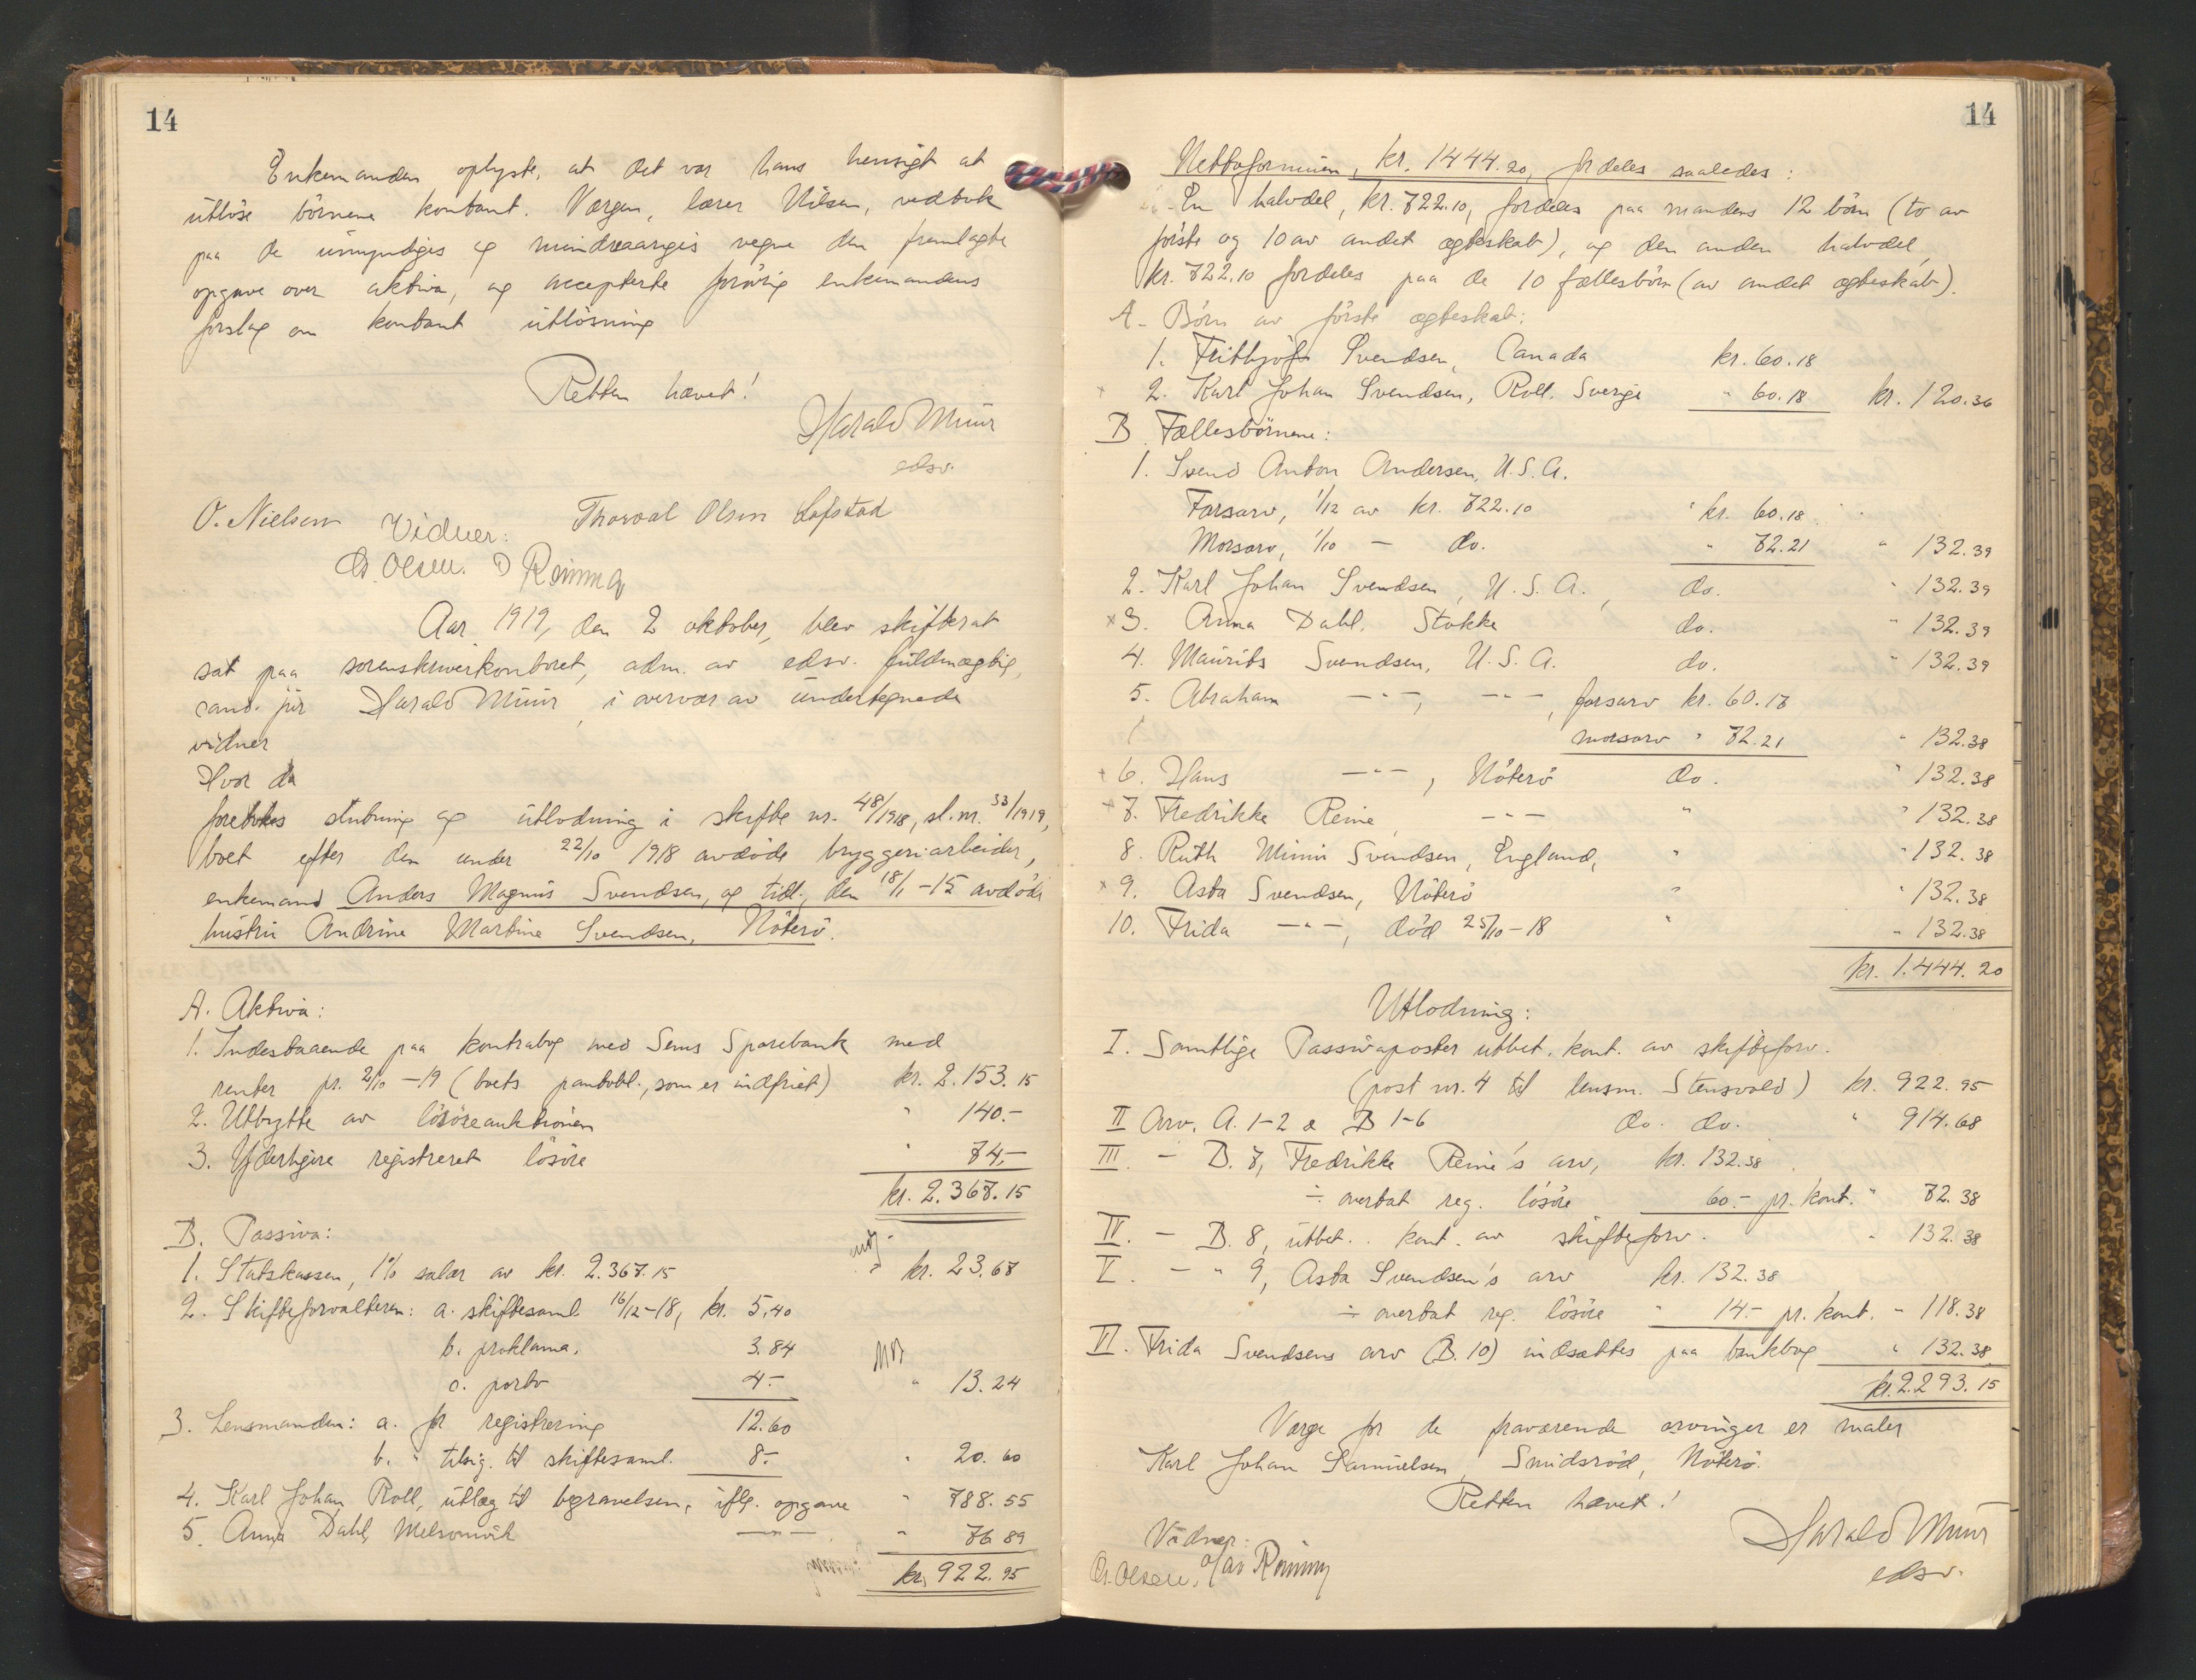 14
Enkemanden oplyste, at det var hans hensigt at
utløse børnene kontant. Værgen, lærer Nilsen, vedtok
paa de umyndiges og mindreaariges vegne den fremlagte
opgave over aktiva, og accepterte forøvrig enkemandens
forslag om kontant utløsning
Retten hævet!
Harald Muur
edsv.
O. Nielsen Thorvat Olsen Lofstad
Vidner:
Ch. Olsen. O Rønning
Aar 1919, den 2 oktober, blev skifteret
sat paa sorenskriverkontoret, adm. av edsv. fuldmægtig,
cand. jur Harald Muur, i overvær av undertegnede
vidner
Hvor da
foretokes slutning og utlodning i skifte nr. 48/1918, sl. nr. 33/1919,
boet efter den under 22/10 1918 avdøde bryggeriarbeider,
enkemand Anders Magnus Svendsen, og tidl., den 18/1-15 avdøde
hustru Andrine Martine Svendsen, Nøterø.
A. Aktiva:
1. Indestaaende paa kontrabog med Sems Sparebank med
renter pr. 2/10-19 (boets pantobl., som er indfriet) kr. 2.153.15
2. Utbytte av løsøreauktionen " 140.-
3. Yderligere registreret løsøre " 74.-
kr. 2.367.15
B. Passiva:
1. Statskassen, 1% salær av kr. 2.367.15 kr. 23.67
2. Skifteforvalteren: a. skiftesaml. 16/12-18, kr. 5.40
b. proklama. 3.84
c. porto 4.- " 13.24
3. Lensmanden: a. for registrering 12.60
b. " tilsig. til skiftesaml. 8.- " 20.60
4. Karl Johan Roll, utlæg til begravelsen, iflg. opgave " 788.55
5. Anna Dahl, Melsomvik -"- " 76.89
kr. 922.95
14
Nettoformuen, kr. 1444.20, fordeles saaledes:
En halvdel, kr. 722.10, fordeles paa mandens 12 børn (to av
første og 10 av andet ægteskab), og den anden halvdel,
kr. 722.10 fordeles paa de 10 fællesbørn (av andet ægteskab).
A. Børn av første ægteskab:
1. Frithjof Svendsen, Canada kr. 60.18
x 2. Karl Johan Svendsen, Roll. Sverige " 60.18 kr. 120.36
B. Fællesbørnene:
1. Svend Anton Andersen, U.S.A.
Farsarv, 1/12 av kr. 722.10 kr. 60.18
Morsarv, 1/10 - do. " 72.21 " 132.39
2. Karl Johan Svendsen, U.S.A., do. " 132.39
x 3. Anna Dahl, Stokke do. " 132.39
4. Maurits Svendsen, U.S.A. do. " 132.39
5. Abraham -"-, -"-, farsarv kr. 60.17
morsarv " 72.21 " 132.38
x 6. Hans -"-, Nøterø do. " 132.38
x 7. Fredrikke Reine, -"- " " 132.38
8. Ruth Mimi Svendsen, England, " " 132.38
x 9. Asta Svendsen, Nøterø " " 132.38
10. Frida -"-, død 25/10-18 " " 132.38
kr. 1.444.20
Utlodning:
I. Samtlige Passivaposter utbet. kont. av skifteforv.
(post nr. 4 til lensm. Stensvold) kr. 922.95
II Arv. A. 1-2 & B 1-6 do. do. " 914.68
III. - B. 7, Fredrikke Reine's arv, kr. 132.38
÷ overtat reg. løsøre 60.- pr. kont. " 72.38
IV. - B. 8, utbet. kont. av skifteforv. " 132.38
V. - " 9, Asta Svendsen's arv kr. 132.38
÷ overtat reg. løsøre " 14.- pr. kont. " 118.38
VI. Frida Svendsens arv (B. 10) indsættes paa bankbog " 132.38
kr. 2.293.15
Værge for de fraværende arvinger er maler
Karl Johan Samuelsen, Smidsrød, Nøterø.
Retten hævet!
Harald Muur
edsv.
Vidner:
Ch. Olsen. Olav Rønning